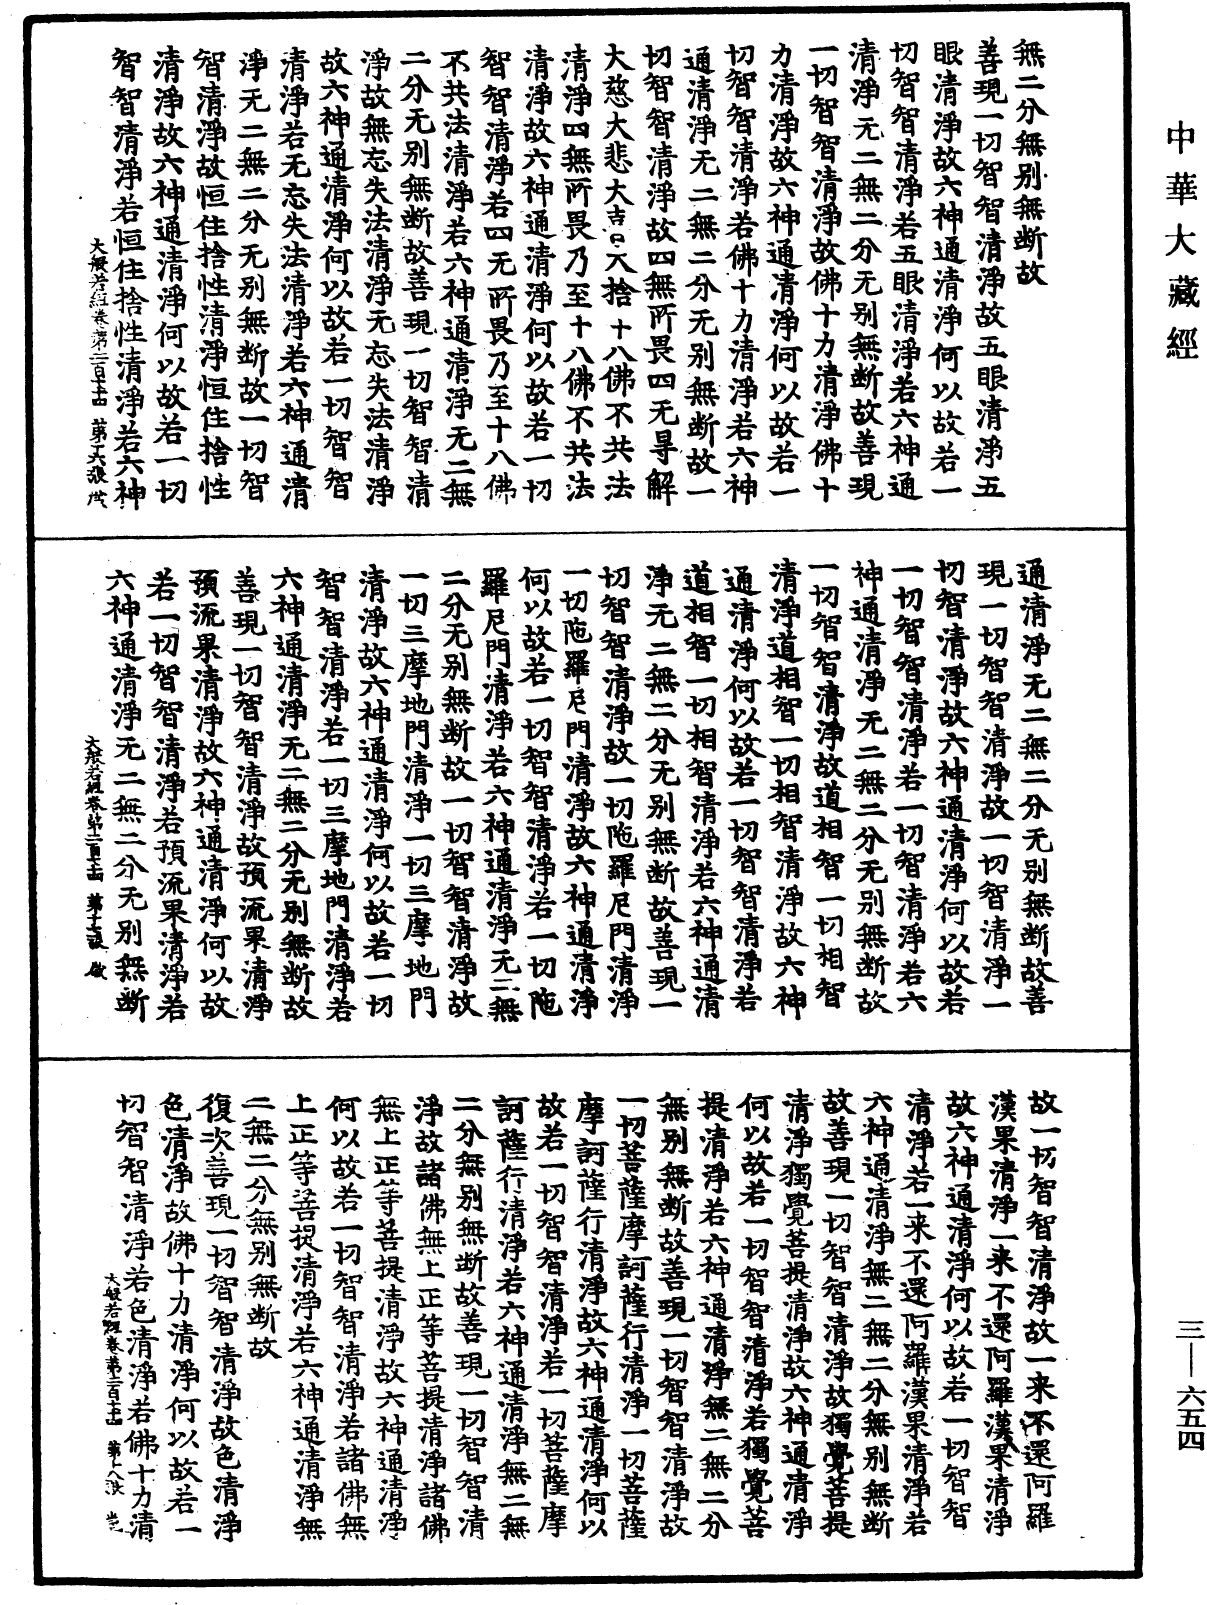 中華大藏經
無二分無别無断故
善現一切智智清淨故五眼清淨五
眼清淨故六神通清淨何以故若一
切智智清淨若五眼清淨若六神通
清淨无二無二分无别無断故善現
一切智智清淨故佛十力清淨佛十
力清淨故六神通清淨何以故若一
切智智清淨若佛十力清淨若六神
通清淨无二無二分无别無断故一
切智智清淨故四無所畏四无导解
大慈大悲大捨十八佛不共法
清淨四無所畏乃至十八佛不共法
清淨故六神通清淨何以故若一切
智智清淨若四无所畏乃至十八佛
不共法清淨若六神通清淨无二無
二分无别無断故善現一切智智清
淨故無忘失法清淨无忘失法清淨
故六神通清淨何以故若一切智智
清淨若无忘失法清淨若六神通清
淨无二無二分无别無断故一切智
智清淨故恒住捨性清淨恒住捨性
清淨故六神通清淨何以故若一切
智智清淨若恒住捨性清淨若六神
大般若經卷第二百十四 第十六張
通清淨无二無二分无别無断故善
現一切智智清淨故一切智清淨一
切智清淨故六神通清淨何以故若
一切智智清淨若一切智清淨若六
神通清淨无二無二分无别無断故
一切智智清淨故道相智一切相智
清淨道相智一切相智清淨故六神
通清淨何以故若一切智智清淨若
道相智一切相智清淨若六神通清
淨无二無二分无别無断故善現一
切智智清淨故一切陁羅尼門清淨
一切陁羅尼門清淨故六神通清淨
何以故若一切智智清淨若一切陁
羅尼門清淨若六神通清淨无二無
二分无别無断故一切智智清淨故
一切三摩地門清淨一切三摩地門
清淨故六神通清淨何以故若一切
智智清淨若一切三摩地門清淨若
六神通清淨无二無二分无别無断故
善現一切智智清淨故預流果清淨
預流果清淨故六神通清淨何以故
若一切智智清淨若預流果清淨若
六神通清淨无二無二分无别無断
大般若經卷第二百十四 第十七張
故一切智智清淨故一来不還阿羅
漢果清淨一来不還阿羅漢果清淨
故六神通清淨何以故若一切智智
清淨若一来不還阿羅漢果清淨若
六神通清淨無二無二分無别無断
故善現一切智智清淨故獨覺菩提
清淨獨覺菩提清淨故六神通清淨
何以故若一切智智清淨若獨覺菩
提清淨若六神通清淨無二無二分
無别無断故善現一切智智清淨故
一切菩薩摩訶薩行清淨一切菩薩
摩訶薩行清淨故六神通清淨何以
故若一切智智清淨若一切菩薩摩
訶薩行清淨若六神通清淨無二無
二分無别無断故善現一切智智清
淨故諸佛無上正等菩提清淨諸佛
無上正等菩提清淨故六神通清淨
何以故若一切智智清淨若諸佛無
上正等菩提清淨若六神通清淨無
二無二分無别無断故
復次善現一切智智清淨故色清淨
色清淨故佛十力清淨何以故若一
切智智清淨若色清淨若佛十力清
大般若經卷第二百十四 第十八張
三—六五四